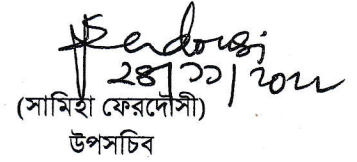 Ferdousi
২৪/১১/২০২২
(সামিহা ফেরদৌসী)
উপসচিব